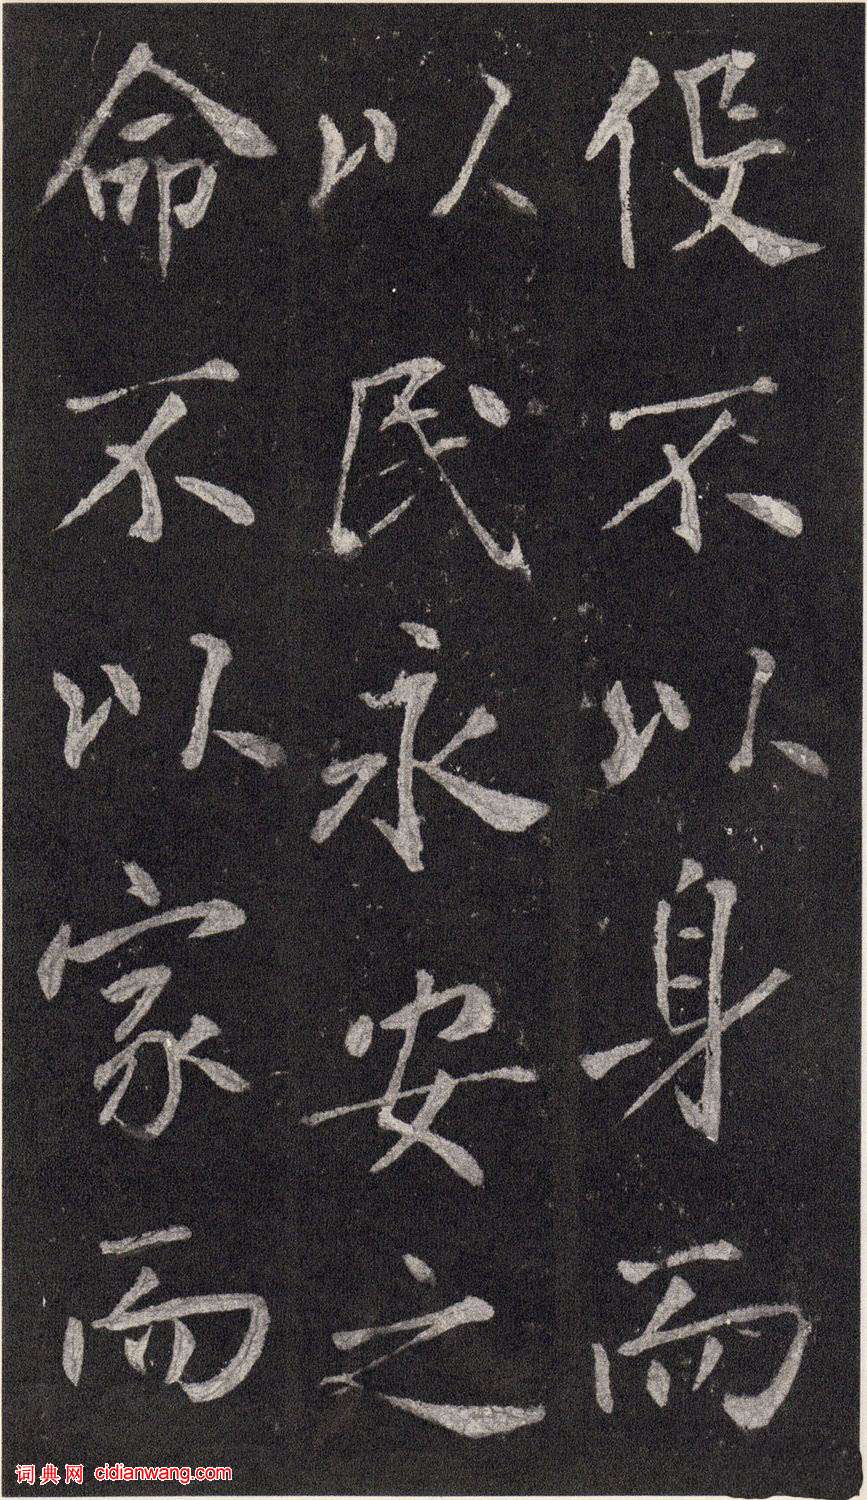 役不以身而
以民永安之
命不以家而
词典网 cidianwang.com